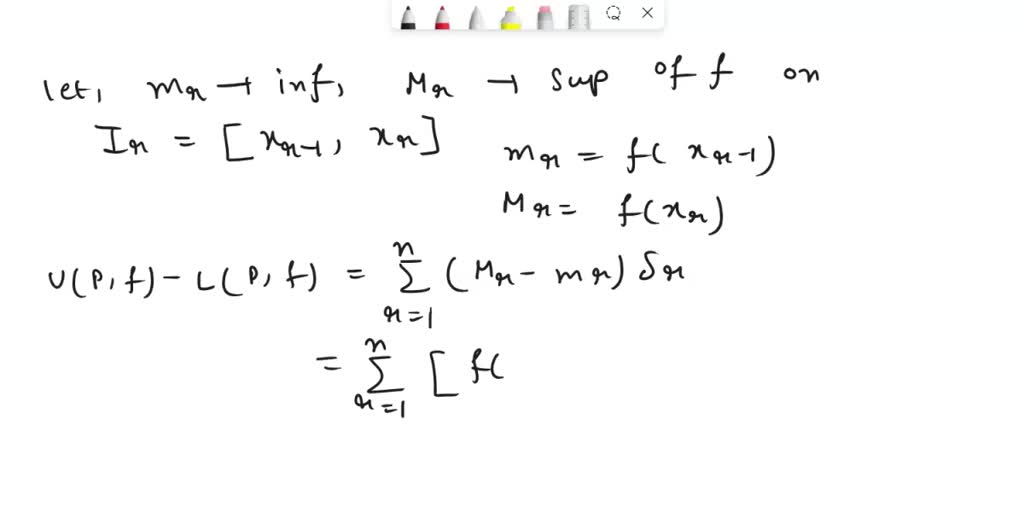 let, mr → inf, Mr → sup of f on
Ir = [xr-1, xr]
mr = f(xr-1)
Mr = f(xr)
U(P, f) - L(P, f) = n∑r=1 (Mr - mr) δr
= n∑r=1 [f(